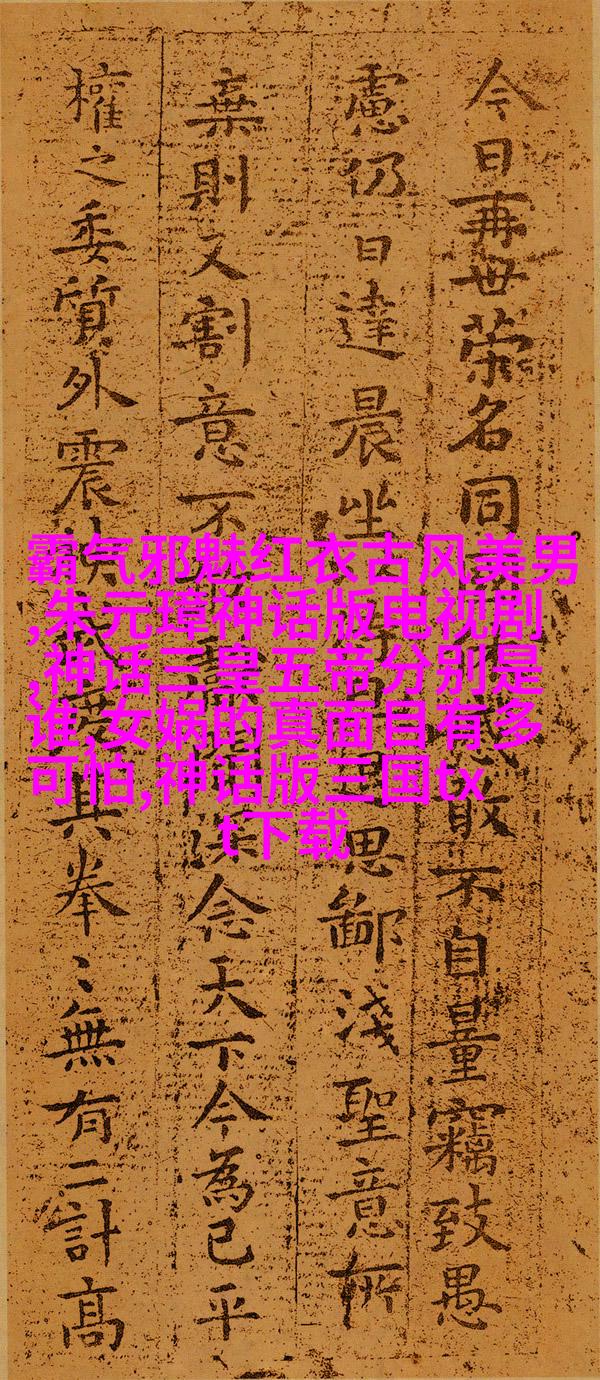 今日再世荣名同敢不自量竊致愚
慮仍日達晨坐思鄙淺聖意所
棄則又割意不念天下今為已平
權之委質外震其拳〻無有二計高
霸气邪魅红衣古风美男
,朱元璋神话版电视剧
,神话三皇五帝分别是
谁,女娲的真面目有多
可怕,神话版三国tx
t下载